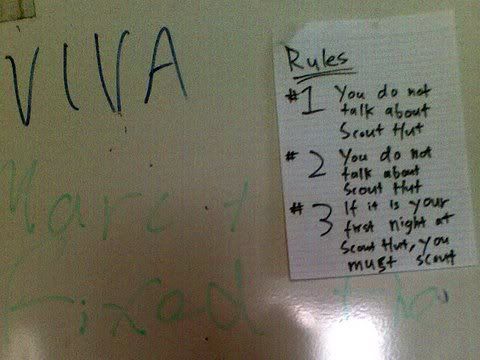 VIVA
Marc
fixed
Rules
#1 You do not
talk about
Scout Hut
#2 You do not
talk about
Scout Hut
#3 If it is your
first night at
Scout Hut, you
must scout